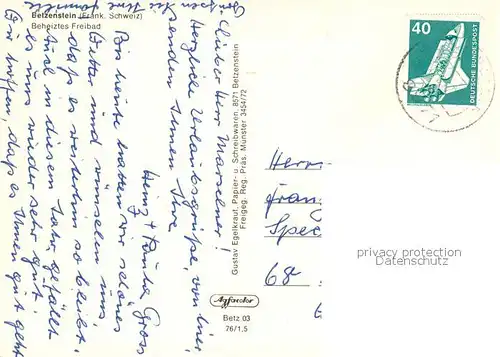 Betzenstein (Fränk. Schweiz)
Beheiztes Freibad
Lieber Herr Marsener!
Herzliche Urlaubsgrüße, von hier,
senden Ihnen Ihre
Heinz + Paula Gross
Bis heute hatten wir schönes
Wetter und wünschen uns,
daß es weiterhin so bleibt.
Auch in diesem Jahr gefällt
es uns wieder sehr gut.
Wir hoffen, daß es Ihnen gut geht
Gustav Egelkraut, Papier- u. Schreibwaren, 8571 Betzenstein
Freigeg. Reg. Präs. Münster 3454/72
Agfacolor
Betz 03
76/1,5
40
DEUTSCHE BUNDESPOST
Herr
Fran
Spe
68
privacy protection
Datenschutz